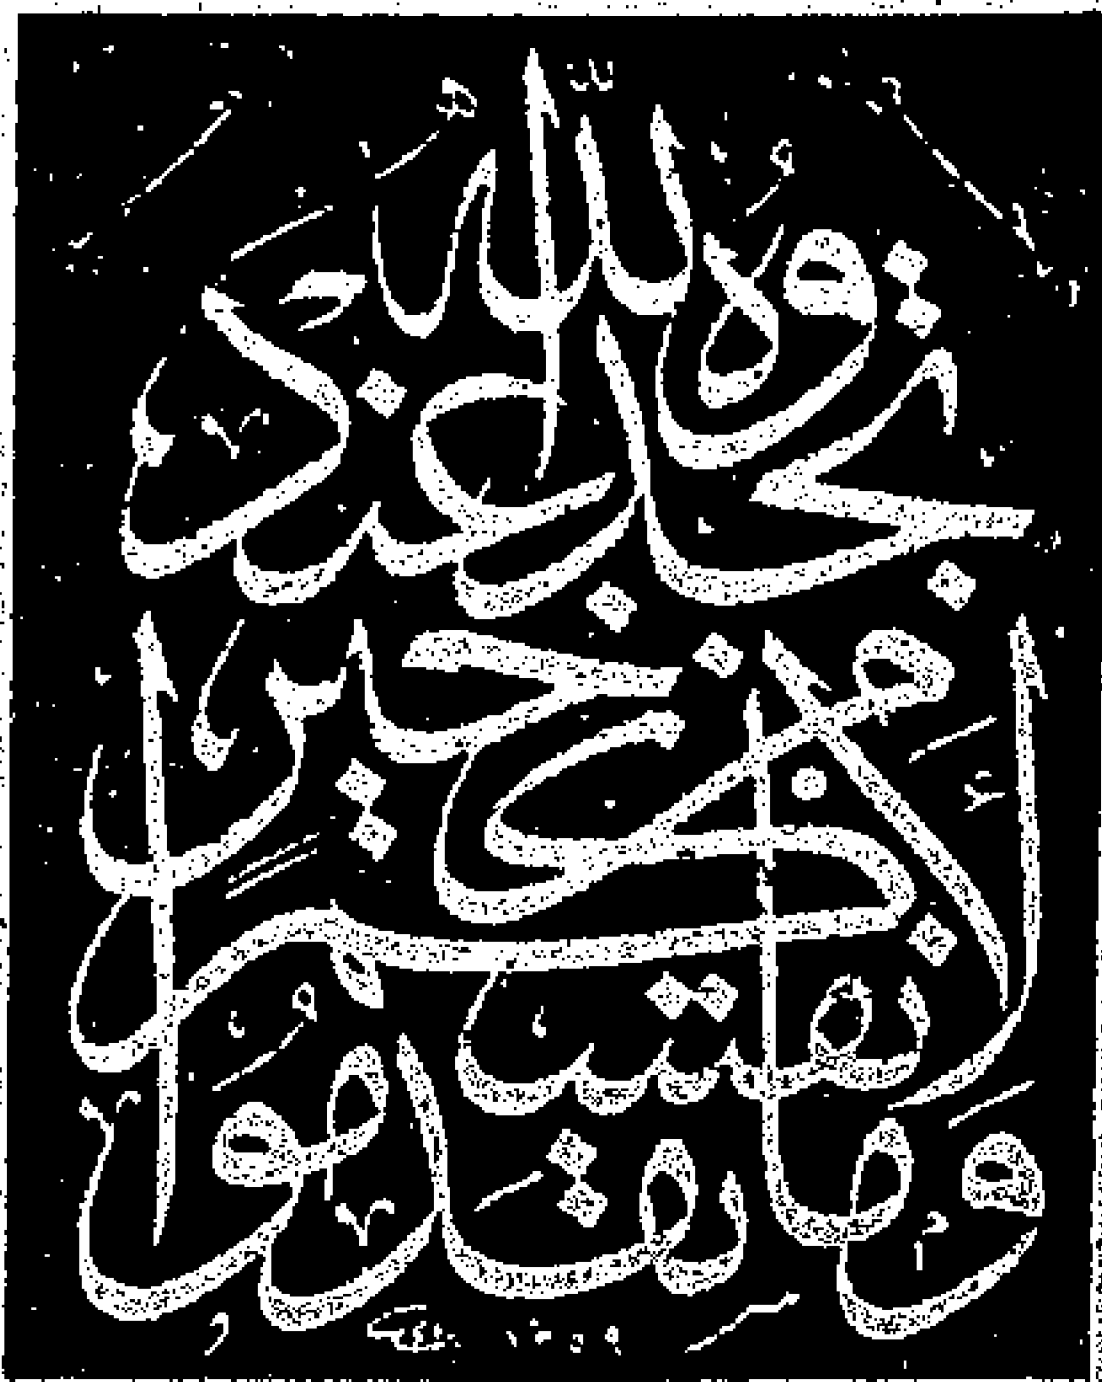 وما تقدموا
لانفسكم من خير
تجدوه عند الله